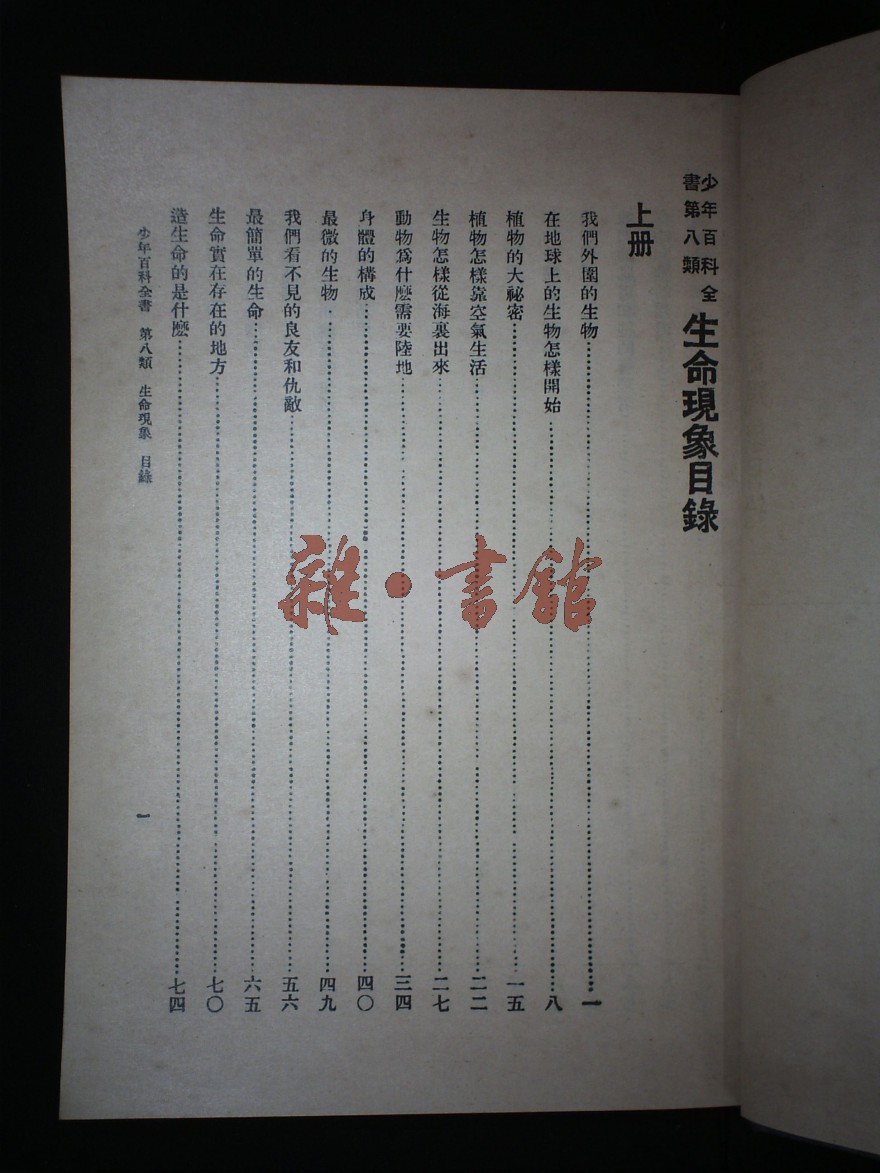 少年百科全
書第八類
生命現象目錄
上册
我們外圍的生物……一
在地球上的生物怎樣開始……八
植物的大祕密……一五
植物怎樣靠空氣生活……二二
生物怎樣從海裏出來……二七
動物爲什麽需要陸地……三四
身體的構成……四〇
最微的生物……四九
我們看不見的良友和仇敵……五六
最簡單的生命……六五
生命實在存在的地方……七〇
造生命的是什麽……七四
少年百科全書 第八類 生命現象 目錄 一
雜·書館